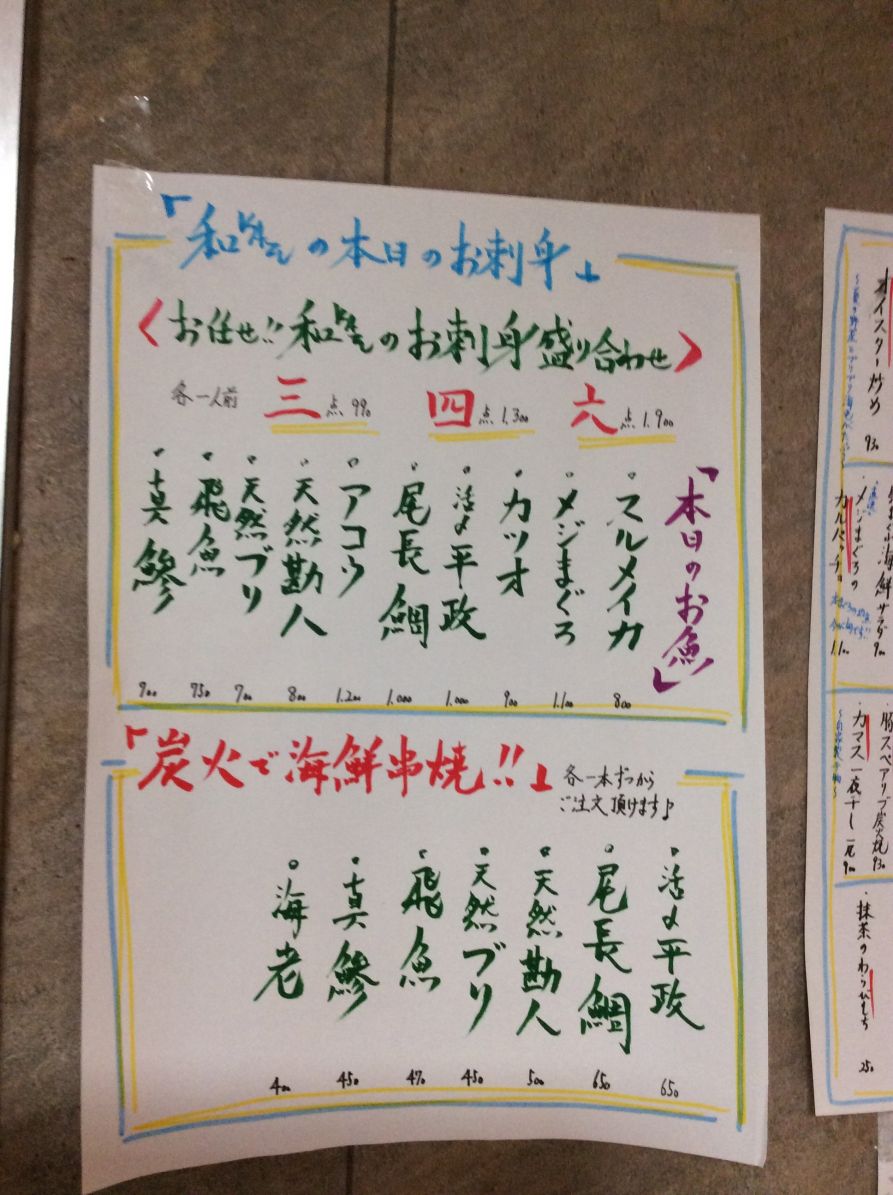 「和さんの本日のお刺身」
〈お任せ!!和さんのお刺身盛り合わせ〉
各一人前 三点 990 四点 1,300 六点 1,900
「本日のお魚」
・スルメイカ 800
・メジまぐろ 1,100
・カツオ 900
・活〆平政 1,000
・尾長鯛 1,000
・アコウ 1,200
・天然勘八 800
・天然ブリ 700
・飛魚 750
・真鯵 900
「炭火で海鮮串焼!!」
各一本ずつから
ご注文頂けます♪
・活〆平政 650
・尾長鯛 650
・天然勘八 500
・天然ブリ 450
・飛魚 470
・真鯵 450
・海老 400
オイスター炒め 930
海鮮サラダ 900
・メジまぐろの
カルパッチョ 1,100
・豚スペアリブ炭火焼 930
・カマス一夜干し 一尾 900
・抹茶のわらびもち 250